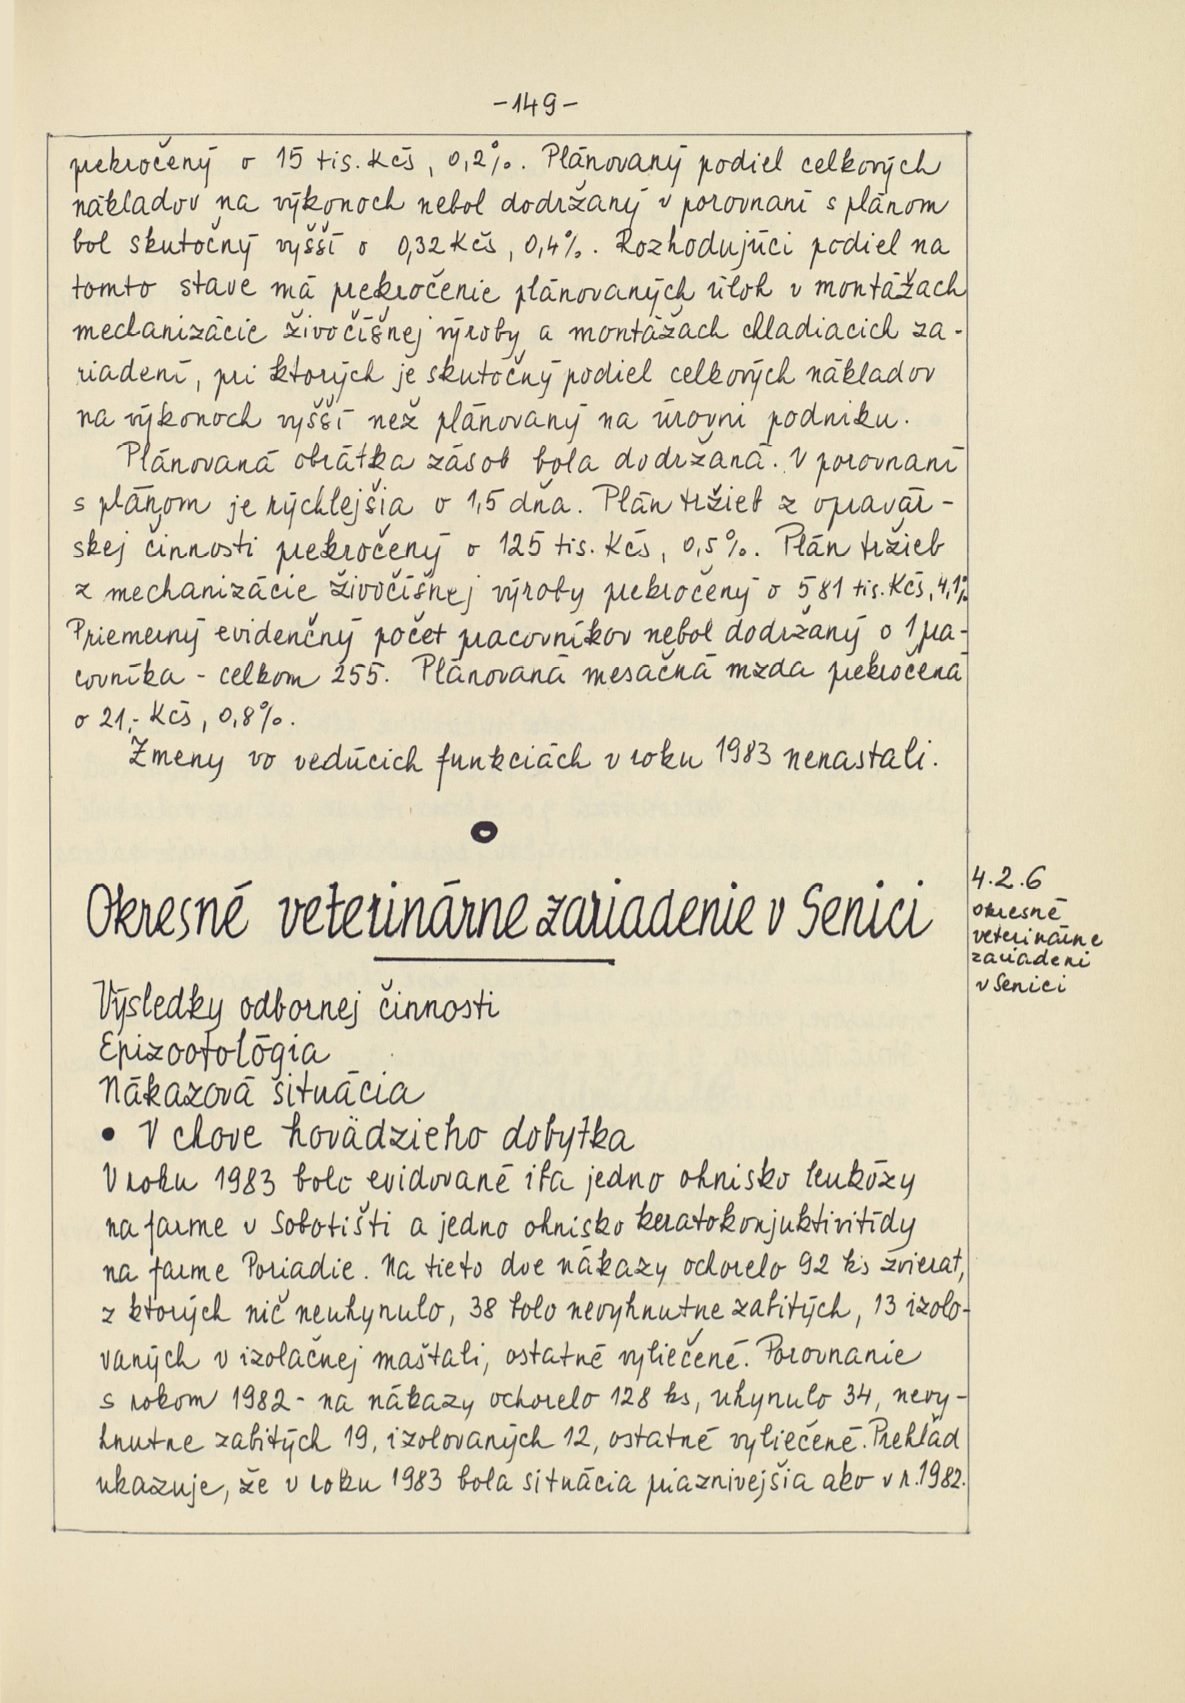 -149-
prekročený o 15 tis. Kčs, 0,2%. Plánovaný podiel celkových
nákladov na výkonoch nebol dodržaný v porovnaní s plánom
bol skutočný vyšší o 0,32 Kčs, 0,4%. Rozhodujúci podiel na
tomto stave má prekročenie plánovaných úloh v montážach
mechanizácie živočíšnej výroby a montážach chladiacich za-
riadení, pri ktorých je skutočný podiel celkových nákladov
na výkonoch vyšší než plánovaný na úrovni podniku.
Plánovaná obrátka zásob bola dodržaná. V porovnaní
s plánom je rýchlejšia o 1,5 dňa. Plán tržieb z opravár-
skej činnosti prekročený o 125 tis. Kčs, 0,5%. Plán tržieb
z mechanizácie živočíšnej výroby prekročený o 581 tis. Kčs, 4,1%
Priemerný evidenčný počet pracovníkov nebol dodržaný o 1 pra-
covníka - celkom 255. Plánovaná mesačná mzda prekročená
o 21,- Kčs, 0,8%.
Zmeny vo vedúcich funkciách v roku 1983 nenastali.
Okresné veterinárne zariadenie v Senici
4.2.6
okresné
veterinárne
zariadeni
v Senici
Výsledky odbornej činnosti
Epizootológia
Nákazová situácia
• V chove hovädzieho dobytka
V roku 1983 bolo evidované iba jedno ohnisko leukózy
na farme v Sobotišti a jedno ohnisko keratokonjuktivitídy
na farme Poriadie. Na tieto dve nákazy ochorelo 92 ks zvierat,
z ktorých nič neuhynulo, 38 bolo nevyhnutne zabitých, 13 izolo-
vaných v izolačnej maštali, ostatné vyliečené. Porovnanie
s rokom 1982 - na nákazy ochorelo 128 ks, uhynulo 34, nevy-
hnutne zabitých 19, izolovaných 12, ostatné vyliečené. Prehľad
ukazuje, že v roku 1983 bola situácia priaznivejšia ako v r. 1982.